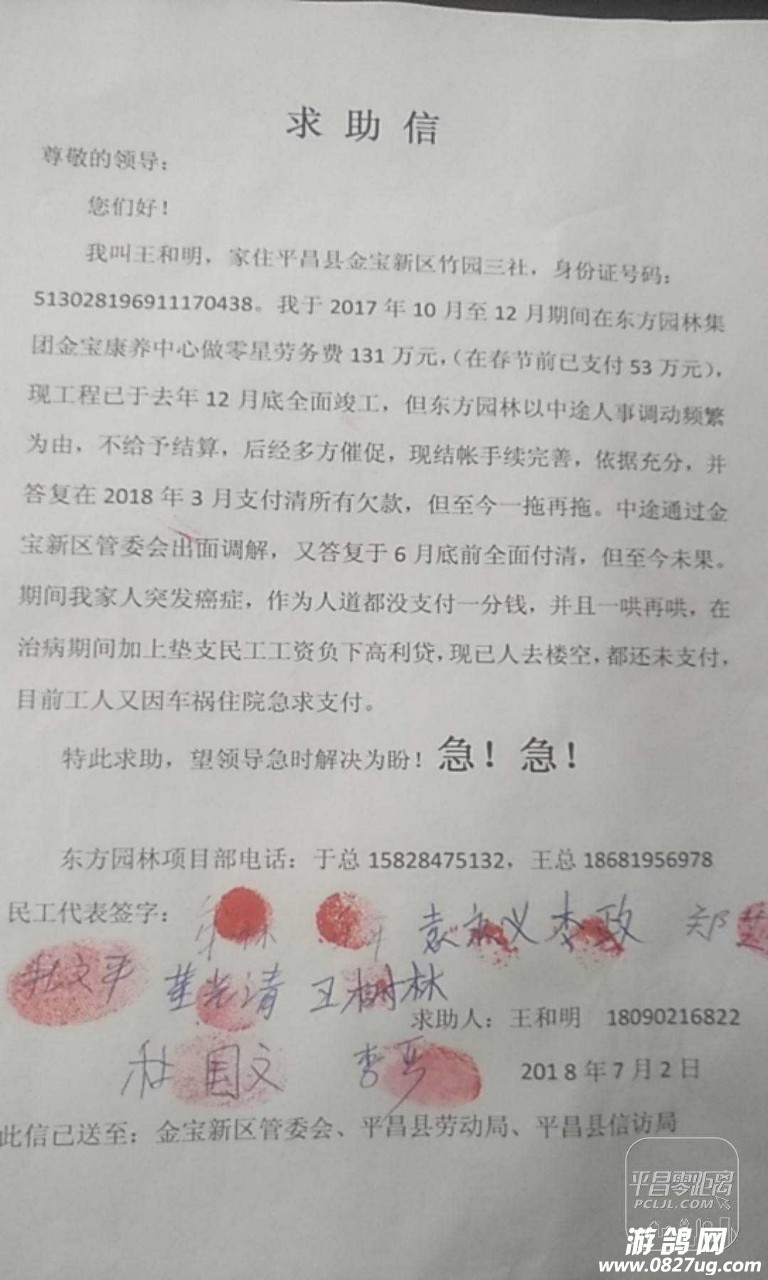 求助信
尊敬的领导：
您们好！
我叫王和明，家住平昌县金宝新区竹园三社，身份证号码：
513028196911170438。我于 2017 年 10 月至 12 月期间在东方园林集
团金宝康养中心做零星劳务费 131 万元，（在春节前已支付 53 万元），
现工程已于去年 12 月底全面竣工，但东方园林以中途人事调动频繁
为由，不给予结算，后经多方催促，现结帐手续完善，依据充分，并
答复在 2018 年 3 月支付清所有欠款，但至今一拖再拖。中途通过金
宝新区管委会出面调解，又答复于 6 月底前全面付清，但至今未果。
期间我家人突发癌症，作为人道都没支付一分钱，并且一哄再哄，在
治病期间加上垫支民工工资负下高利贷，现已人去楼空，都还未支付，
目前工人又因车祸住院急求支付。
特此求助，望领导急时解决为盼！急！急！
东方园林项目部电话：于总 15828475132，王总 18681956978
民工代表签字： 林 袁 义 李政 郑
杜文平 董光清 王树林
求助人：王和明 18090216822
杜国文 李
2018 年 7 月 2 日
此信已送至：金宝新区管委会、平昌县劳动局、平昌县信访局
平昌零距离
PCLJL.COM
游鸽网
www.0827ug.com